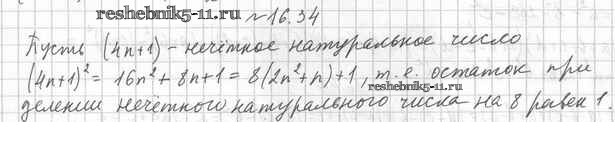 reshebnik5-11.ru
№16.34
Пусть (4n+1) - нечётное натуральное число
(4n+1)² = 16n² + 8n + 1 = 8(2n² + n) + 1, т.е. остаток при
reshebnik5-11.ru
делении нечётного натурального числа на 8 равен 1.